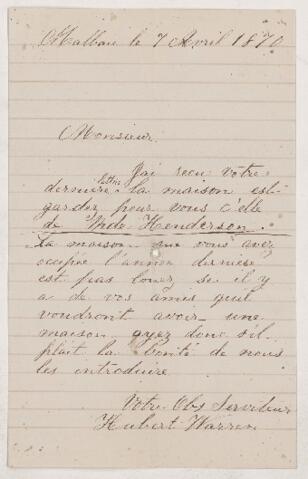 Malbaie le 7 Avril 1870
Monsieur
J'ai recu votre
derniere lettre la maison est
gardez pour vous c'elle
de Wide Henderson
La maison que vous avez
occupée l'annee derniere
est pas louez se il y
a de vos amis quil
voudront avoir une
maison ayez donc s'il
plait la bonté de nous
les introduire
Votre Obs Serviteur
Hubert Warren